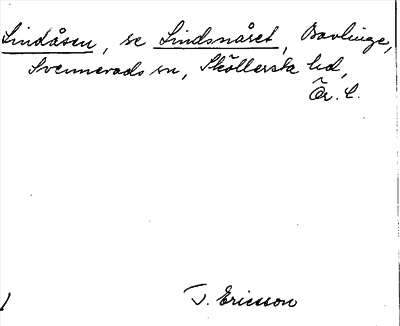 Lindåsen, se Lindsnåret, Bavlinge,
Svennerads sn, Sköllersta hd,
Ör. l.
T. Ericsson